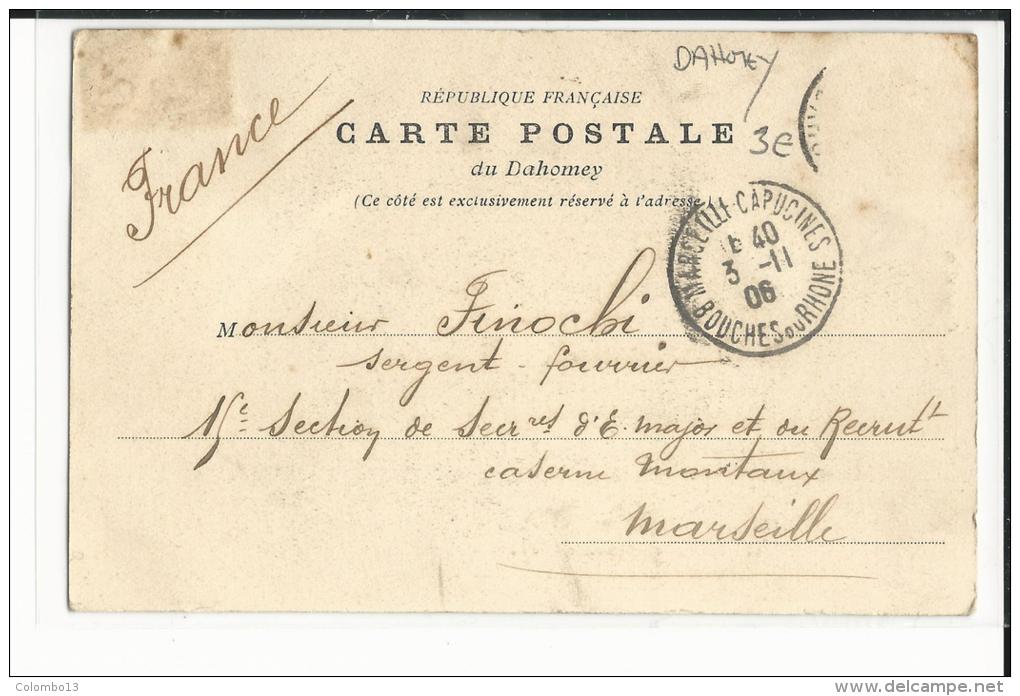 DAHOMEY
3E
France
RÉPUBLIQUE FRANÇAISE
CARTE POSTALE
du Dahomey
(Ce côté est exclusivement réservé à l'adresse.)
MARSEILLE-CAPUCINES
40
3 -11
06
BOUCHES DU RHONE
Monsieur Finochi
sergent-fourrier
15e Section de Secres d'E. major et du Recrutt
caserne Montaux
Marseille
Colombo13
www.delcampe.net